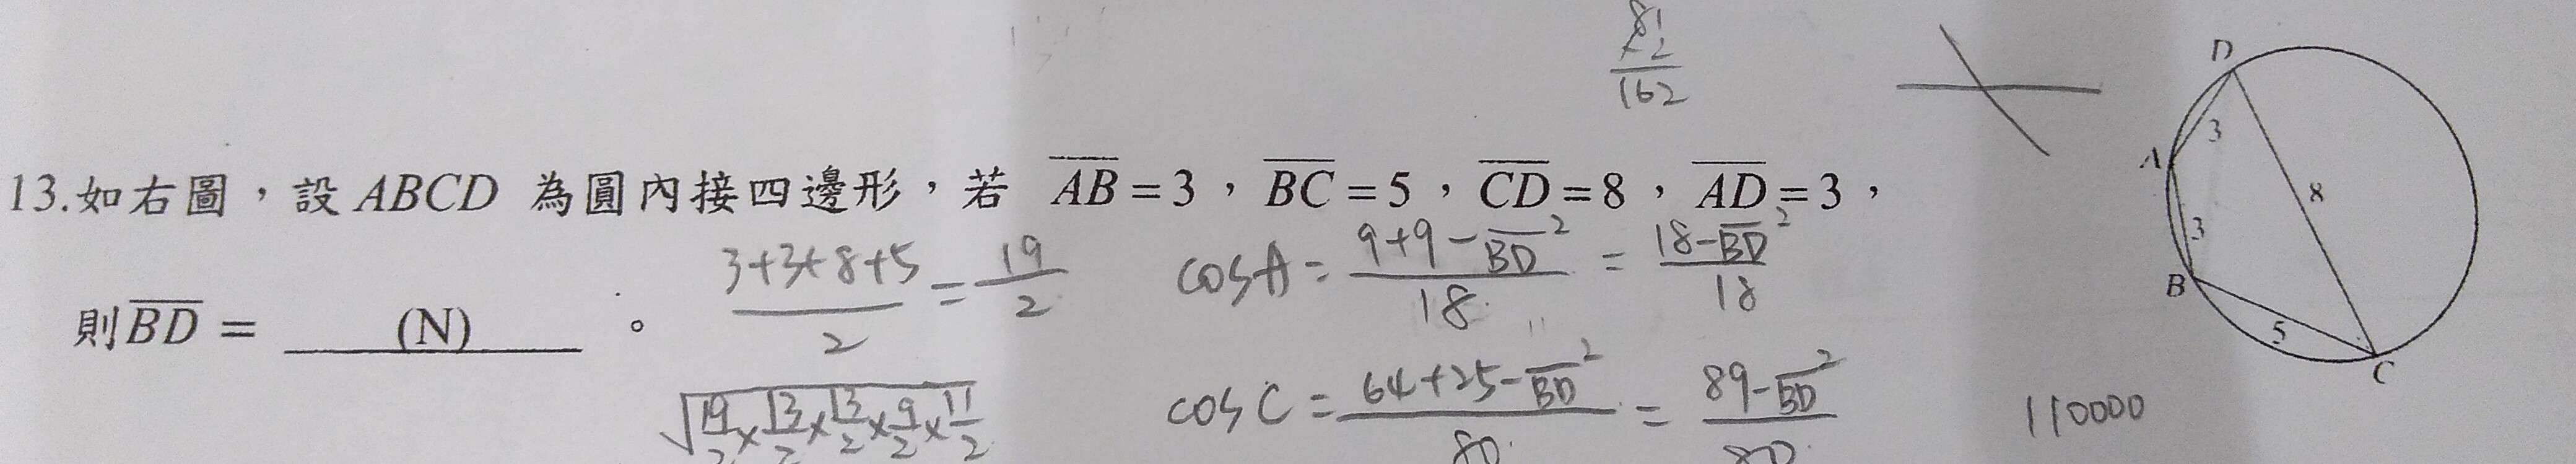 81
×2
162
13.如右圖，設 ABCD 為圓內接四邊形，若 \overline{AB}=3，\overline{BC}=5，\overline{CD}=8，\overline{AD}=3，
則\overline{BD} = (N) 。
\frac{3+3+8+5}{2} = \frac{19}{2}
cosA = \frac{9+9-\overline{BD}^2}{18} = \frac{18-\overline{BD}^2}{18}
cosC = \frac{64+25-\overline{BD}^2}{80} = \frac{89-\overline{BD}^2}{80}
\sqrt{\frac{19}{2}×\frac{13}{2}×\frac{13}{2}×\frac{9}{2}×\frac{11}{2}}
110000
D
3
A
8
3
B
5
C